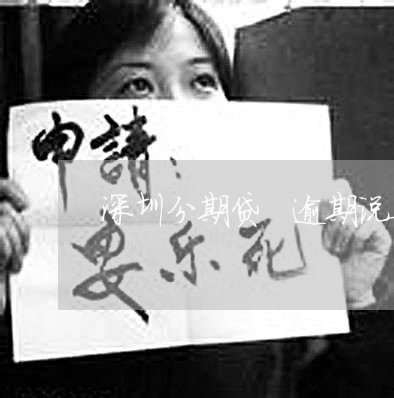 申請：
深圳分期贷 逾期说
安乐死